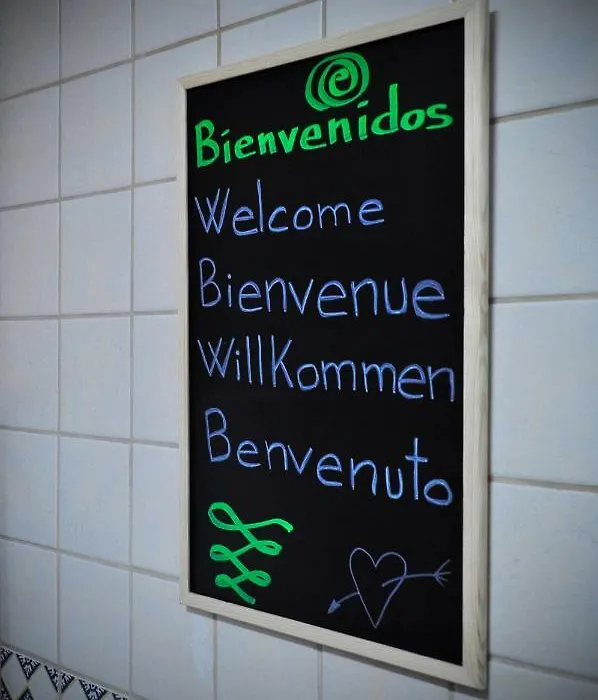 Bienvenidos
Welcome
Bienvenue
Willkommen
Benvenuto